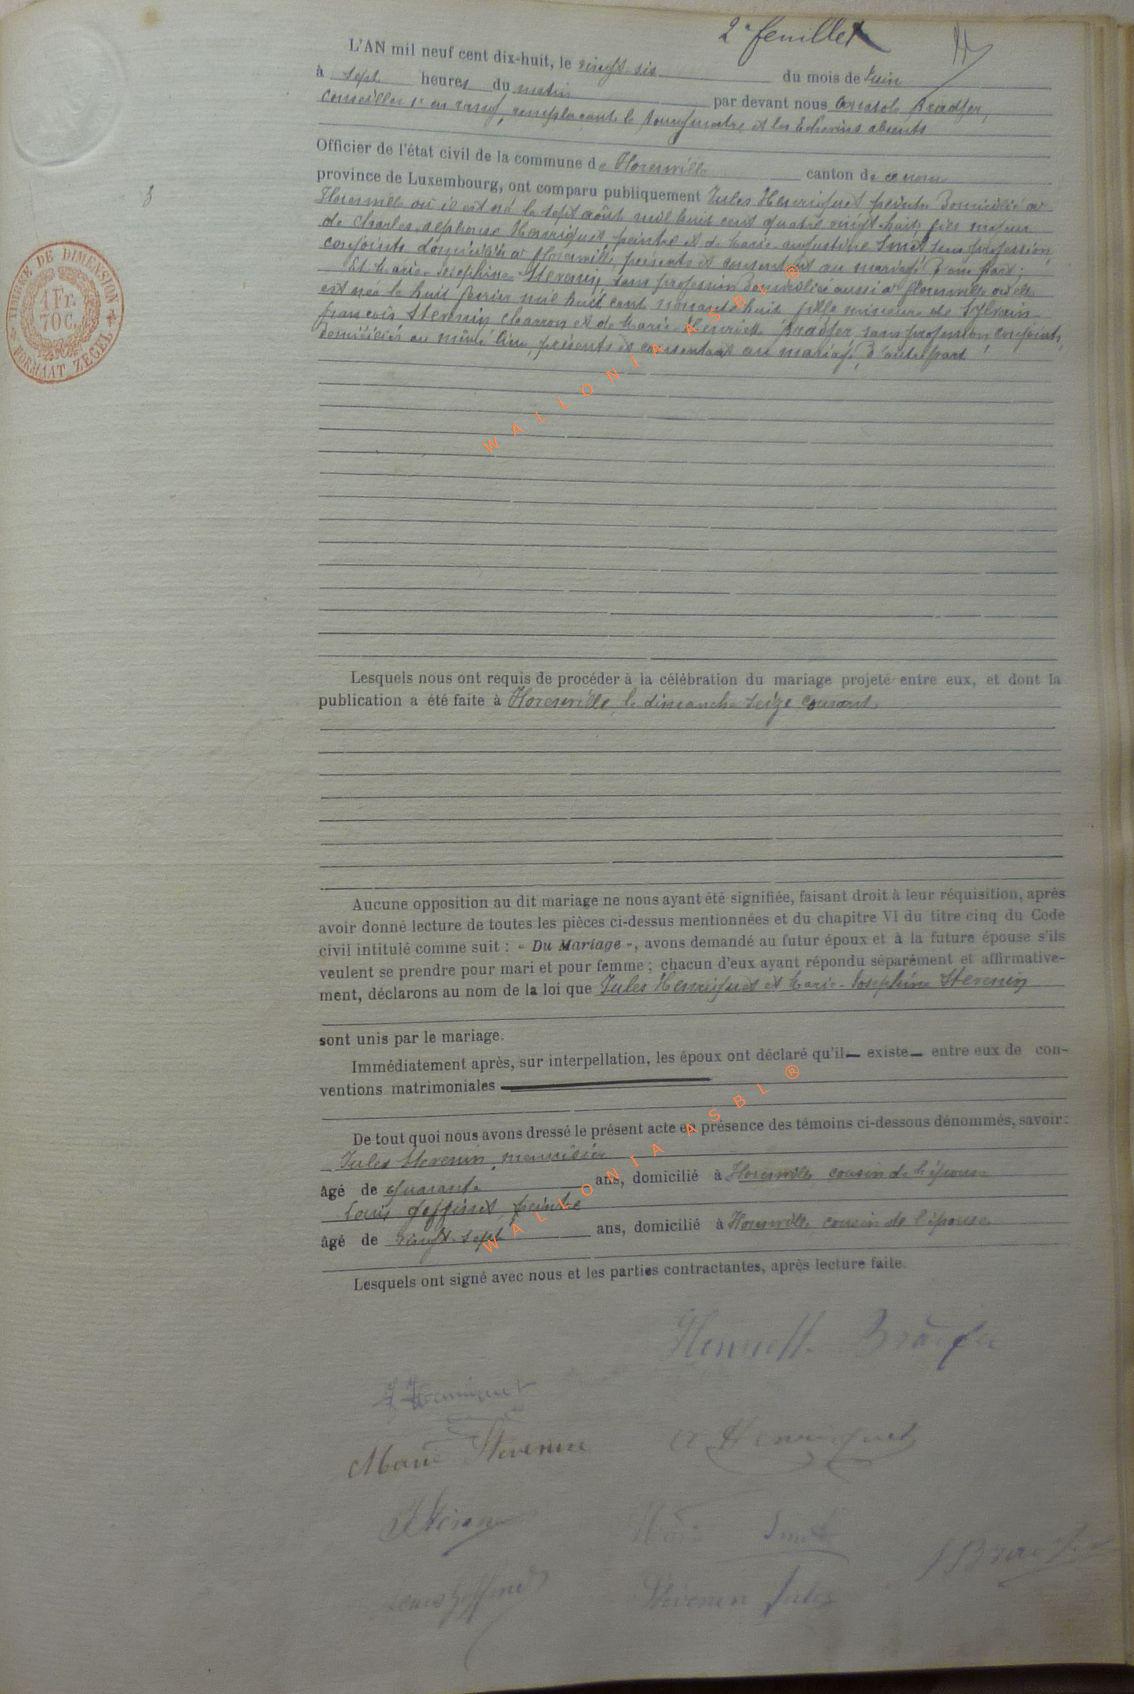 2e feuillet
L'AN mil neuf cent dix-huit, le vingt six du mois de Juin
à sept heures du matin par devant nous Anatole Bradfer,
Conseiller 1er en rang, remplaçant le bourgmestre et les Echevins absents
Officier de l'état civil de la commune de Florenville canton de ce nom
province de Luxembourg, ont comparu publiquement Jules Henriquet peintre domicilié à
Florenville où il est né le sept août mil huit cent quatre vingt huit, fils majeur
de Charles-alphonse Henriquet peintre et de Marie-augustine Smet, sans profession,
conjoints domiciliés à Florenville, présents et consentant au mariage, d'une part;
Et Marie-Joséphine Stevenin, sans profession domiciliée aussi à Florenville où elle
est née le huit février mil huit cent nonante huit, fille mineure de Sylvain
françois Stevenin charron et de Marie-Henriette Bradfer, sans profession, conjoints,
domiciliés au même lieu, présents et consentant au mariage, d'autre part
TIMBRE DE DIMENSION
1 Fr.
70 C.
FORMAAT ZEGEL
Lesquels nous ont requis de procéder à la célébration du mariage projeté entre eux, et dont la
publication a été faite à Florenville, le dimanche seize courant.
Aucune opposition au dit mariage ne nous ayant été signifiée, faisant droit à leur réquisition, après
avoir donné lecture de toutes les pièces ci-dessus mentionnées et du chapitre VI du titre cinq du Code
civil intitulé comme suit : « Du Mariage », avons demandé au futur époux et à la future épouse s'ils
veulent se prendre pour mari et pour femme ; chacun d'eux ayant répondu séparément et affirmative-
ment, déclarons au nom de la loi que Jules Henriquet et Marie-Joséphine Stevenin
sont unis par le mariage.
Immédiatement après, sur interpellation, les époux ont déclaré qu'il — existe — entre eux de con-
ventions matrimoniales
De tout quoi nous avons dressé le présent acte en présence des témoins ci-dessous dénommés, savoir :
Jules Stevenin, menuisier
âgé de quarante ans, domicilié à Florenville cousin de l'épouse
Louis Goffinet peintre
âgé de vingt-sept ans, domicilié à Florenville cousin de l'épouse
Lesquels ont signé avec nous et les parties contractantes, après lecture faite.
Henriette Bradfer
J Henriquet
Marie Stevenin
A Henriquet
Marie Smet
Bradfer
Louis Goffinet
Stevenin Jules
WALLONIA ASBL ®
WALLONIA ASBL ®